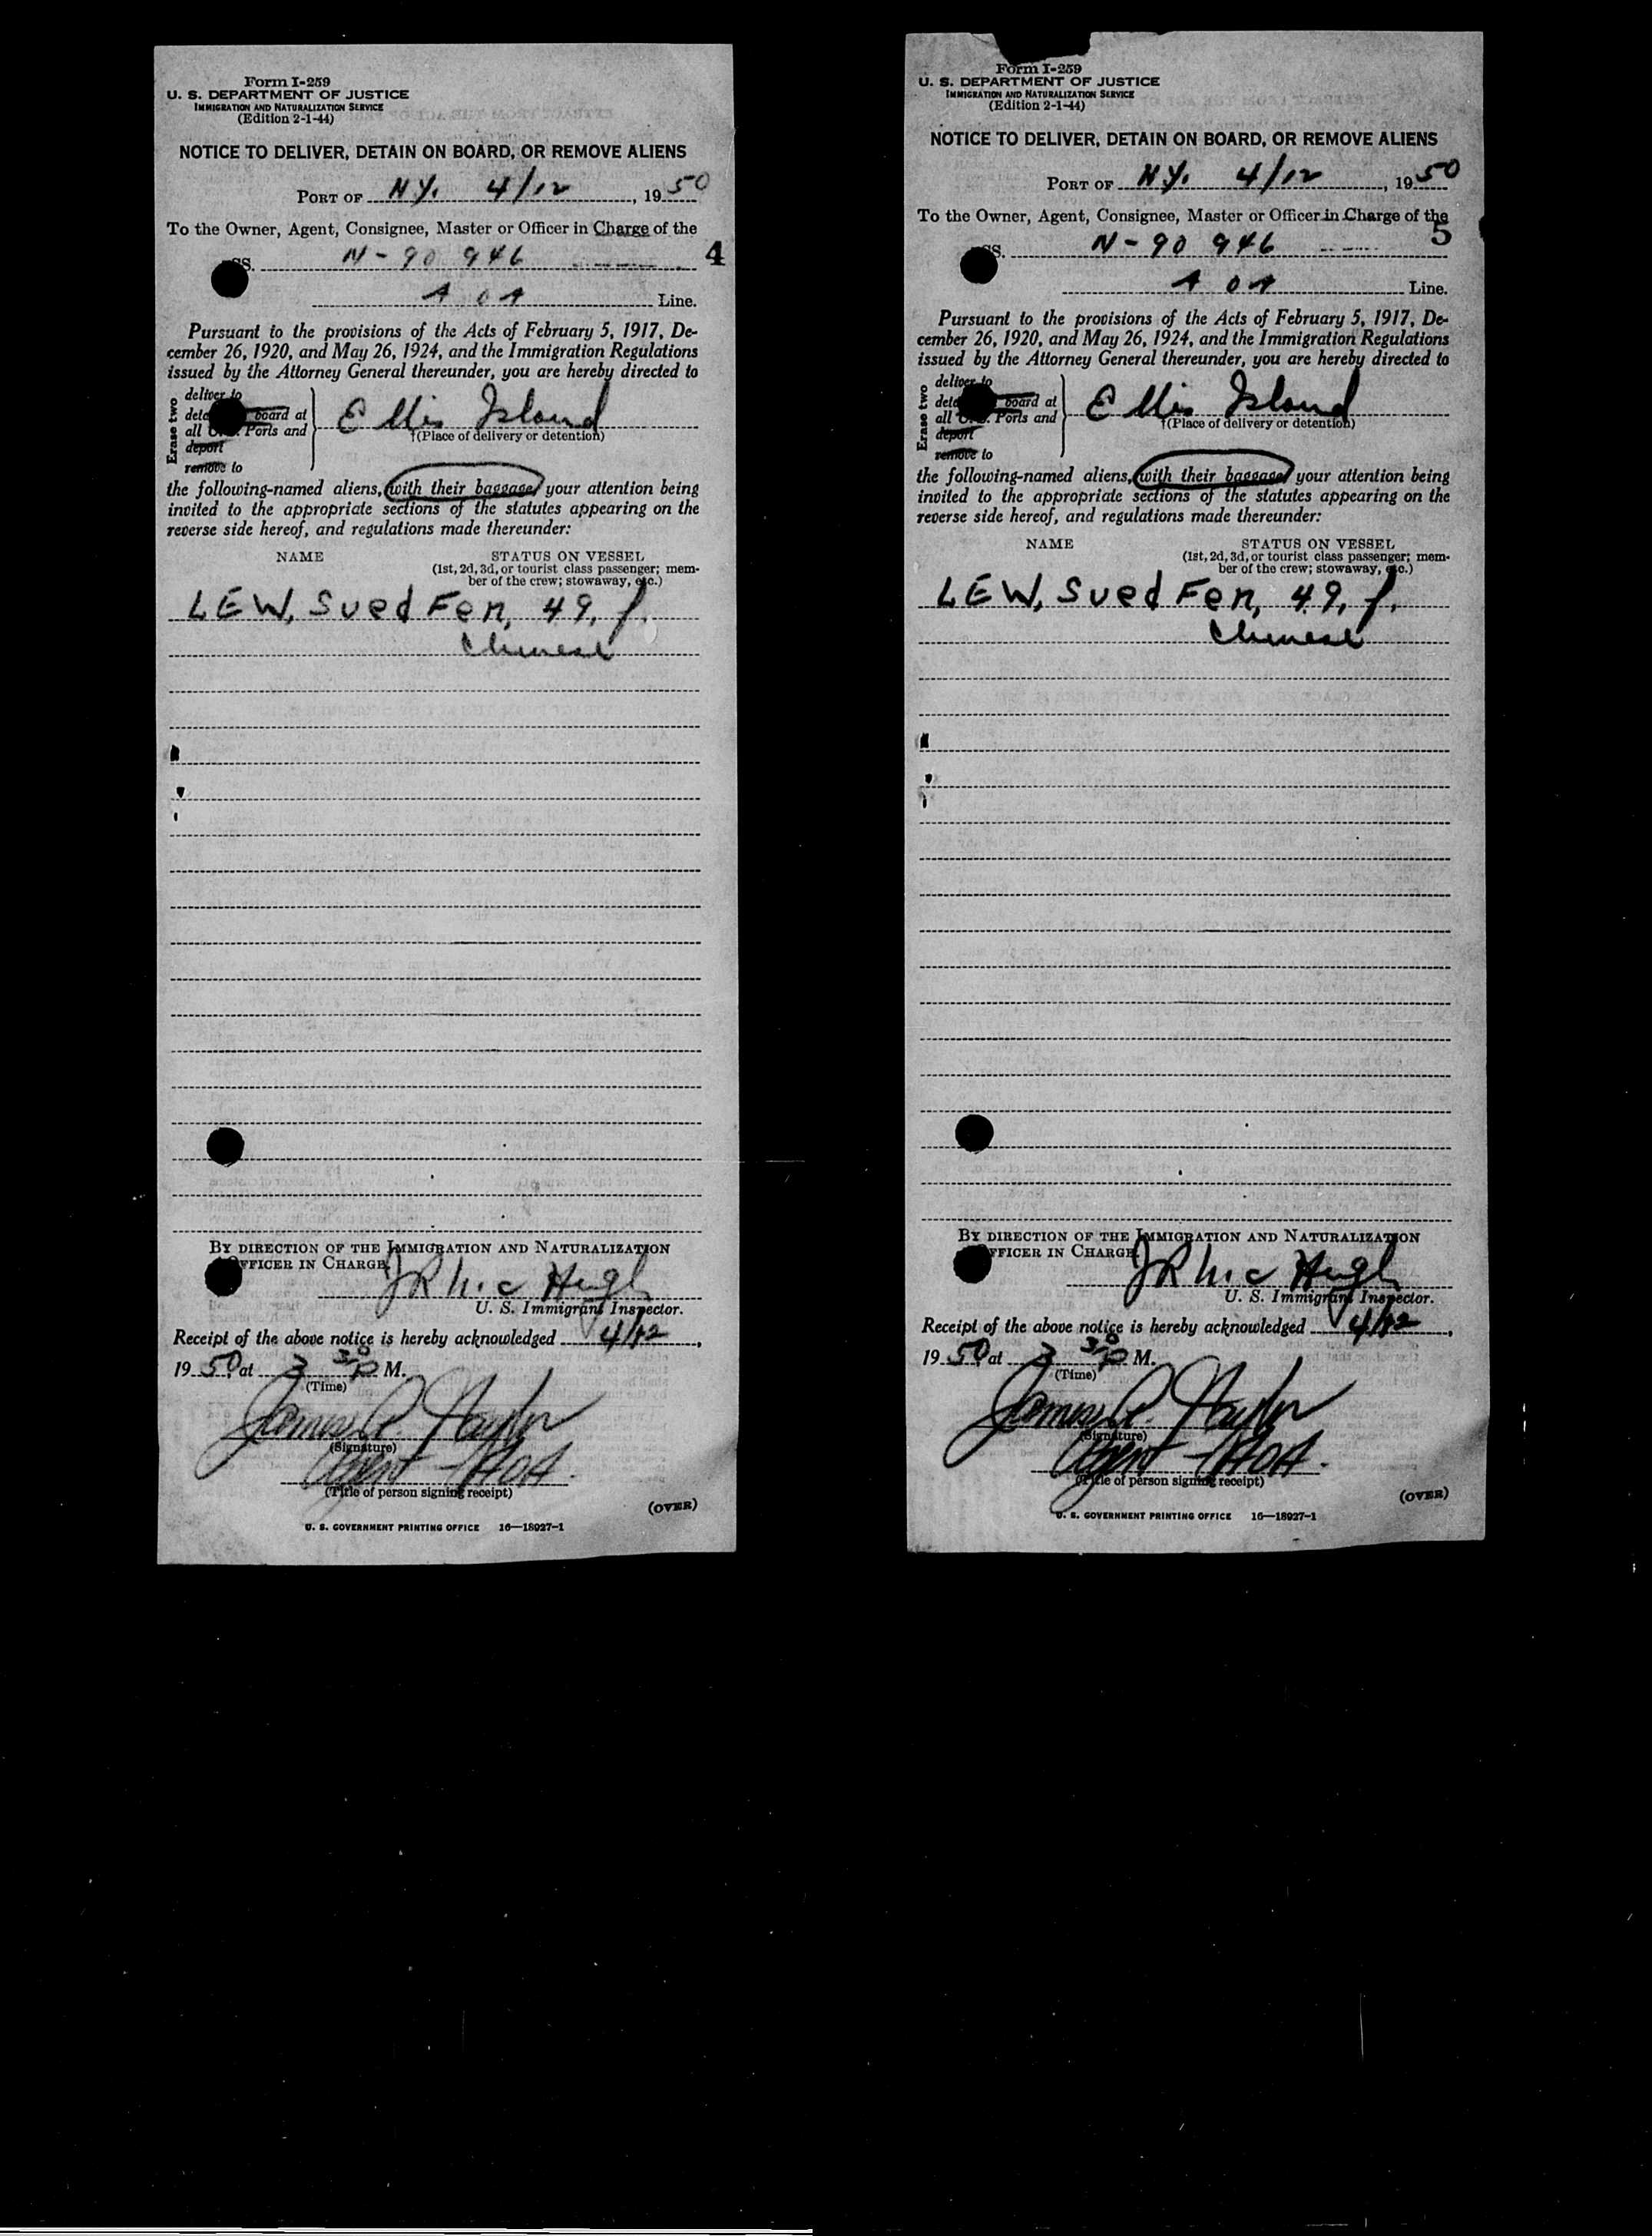 Form I-259
U. S. DEPARTMENT OF JUSTICE
IMMIGRATION AND NATURALIZATION SERVICE
(Edition 2-1-44)
NOTICE TO DELIVER, DETAIN ON BOARD, OR REMOVE ALIENS
PORT OF N.Y. 4/12, 1950
To the Owner, Agent, Consignee, Master or Officer in Charge of the
SS. N-90 946 4
A O A Line.
Pursuant to the provisions of the Acts of February 5, 1917, De-
cember 26, 1920, and May 26, 1924, and the Immigration Regulations
issued by the Attorney General thereunder, you are hereby directed to
Erase two
deliver to
board at
all Ports and
deport
remove to
Ellis Island
†(Place of delivery or detention)
the following-named aliens, with their baggage, your attention being
invited to the appropriate sections of the statutes appearing on the
reverse side hereof, and regulations made thereunder:
NAME STATUS ON VESSEL
(1st, 2d, 3d, or tourist class passenger; mem-
ber of the crew; stowaway, etc.)
LEW, Sued Fen, 49, f.
Chinese
BY DIRECTION OF THE IMMIGRATION AND NATURALIZATION
OFFICER IN CHARGE.
J R Mc Hugh
U. S. Immigrant Inspector.
Receipt of the above notice is hereby acknowledged 4/12,
1950 at 3 30 P M.
(Time)
James Naylor
(Signature)
Agent - AOA.
(Title of person signing receipt)
(OVER)
U. S. GOVERNMENT PRINTING OFFICE 16—18927-1
Form I-259
U. S. DEPARTMENT OF JUSTICE
IMMIGRATION AND NATURALIZATION SERVICE
(Edition 2-1-44)
NOTICE TO DELIVER, DETAIN ON BOARD, OR REMOVE ALIENS
PORT OF N.Y. 4/12, 1950
To the Owner, Agent, Consignee, Master or Officer in Charge of the
SS. N-90 946 5
A O A Line.
Pursuant to the provisions of the Acts of February 5, 1917, De-
cember 26, 1920, and May 26, 1924, and the Immigration Regulations
issued by the Attorney General thereunder, you are hereby directed to
Erase two
deliver to
board at
all Ports and
deport
remove to
Ellis Island
†(Place of delivery or detention)
the following-named aliens, with their baggage, your attention being
invited to the appropriate sections of the statutes appearing on the
reverse side hereof, and regulations made thereunder:
NAME STATUS ON VESSEL
(1st, 2d, 3d, or tourist class passenger; mem-
ber of the crew; stowaway, etc.)
LEW, Sued Fen, 49, f.
Chinese
BY DIRECTION OF THE IMMIGRATION AND NATURALIZATION
OFFICER IN CHARGE.
J R Mc Hugh
U. S. Immigrant Inspector.
Receipt of the above notice is hereby acknowledged 4/12,
1950 at 3 30 P M.
(Time)
James Naylor
(Signature)
Agent - AOA.
(Title of person signing receipt)
(OVER)
U. S. GOVERNMENT PRINTING OFFICE 16—18927-1